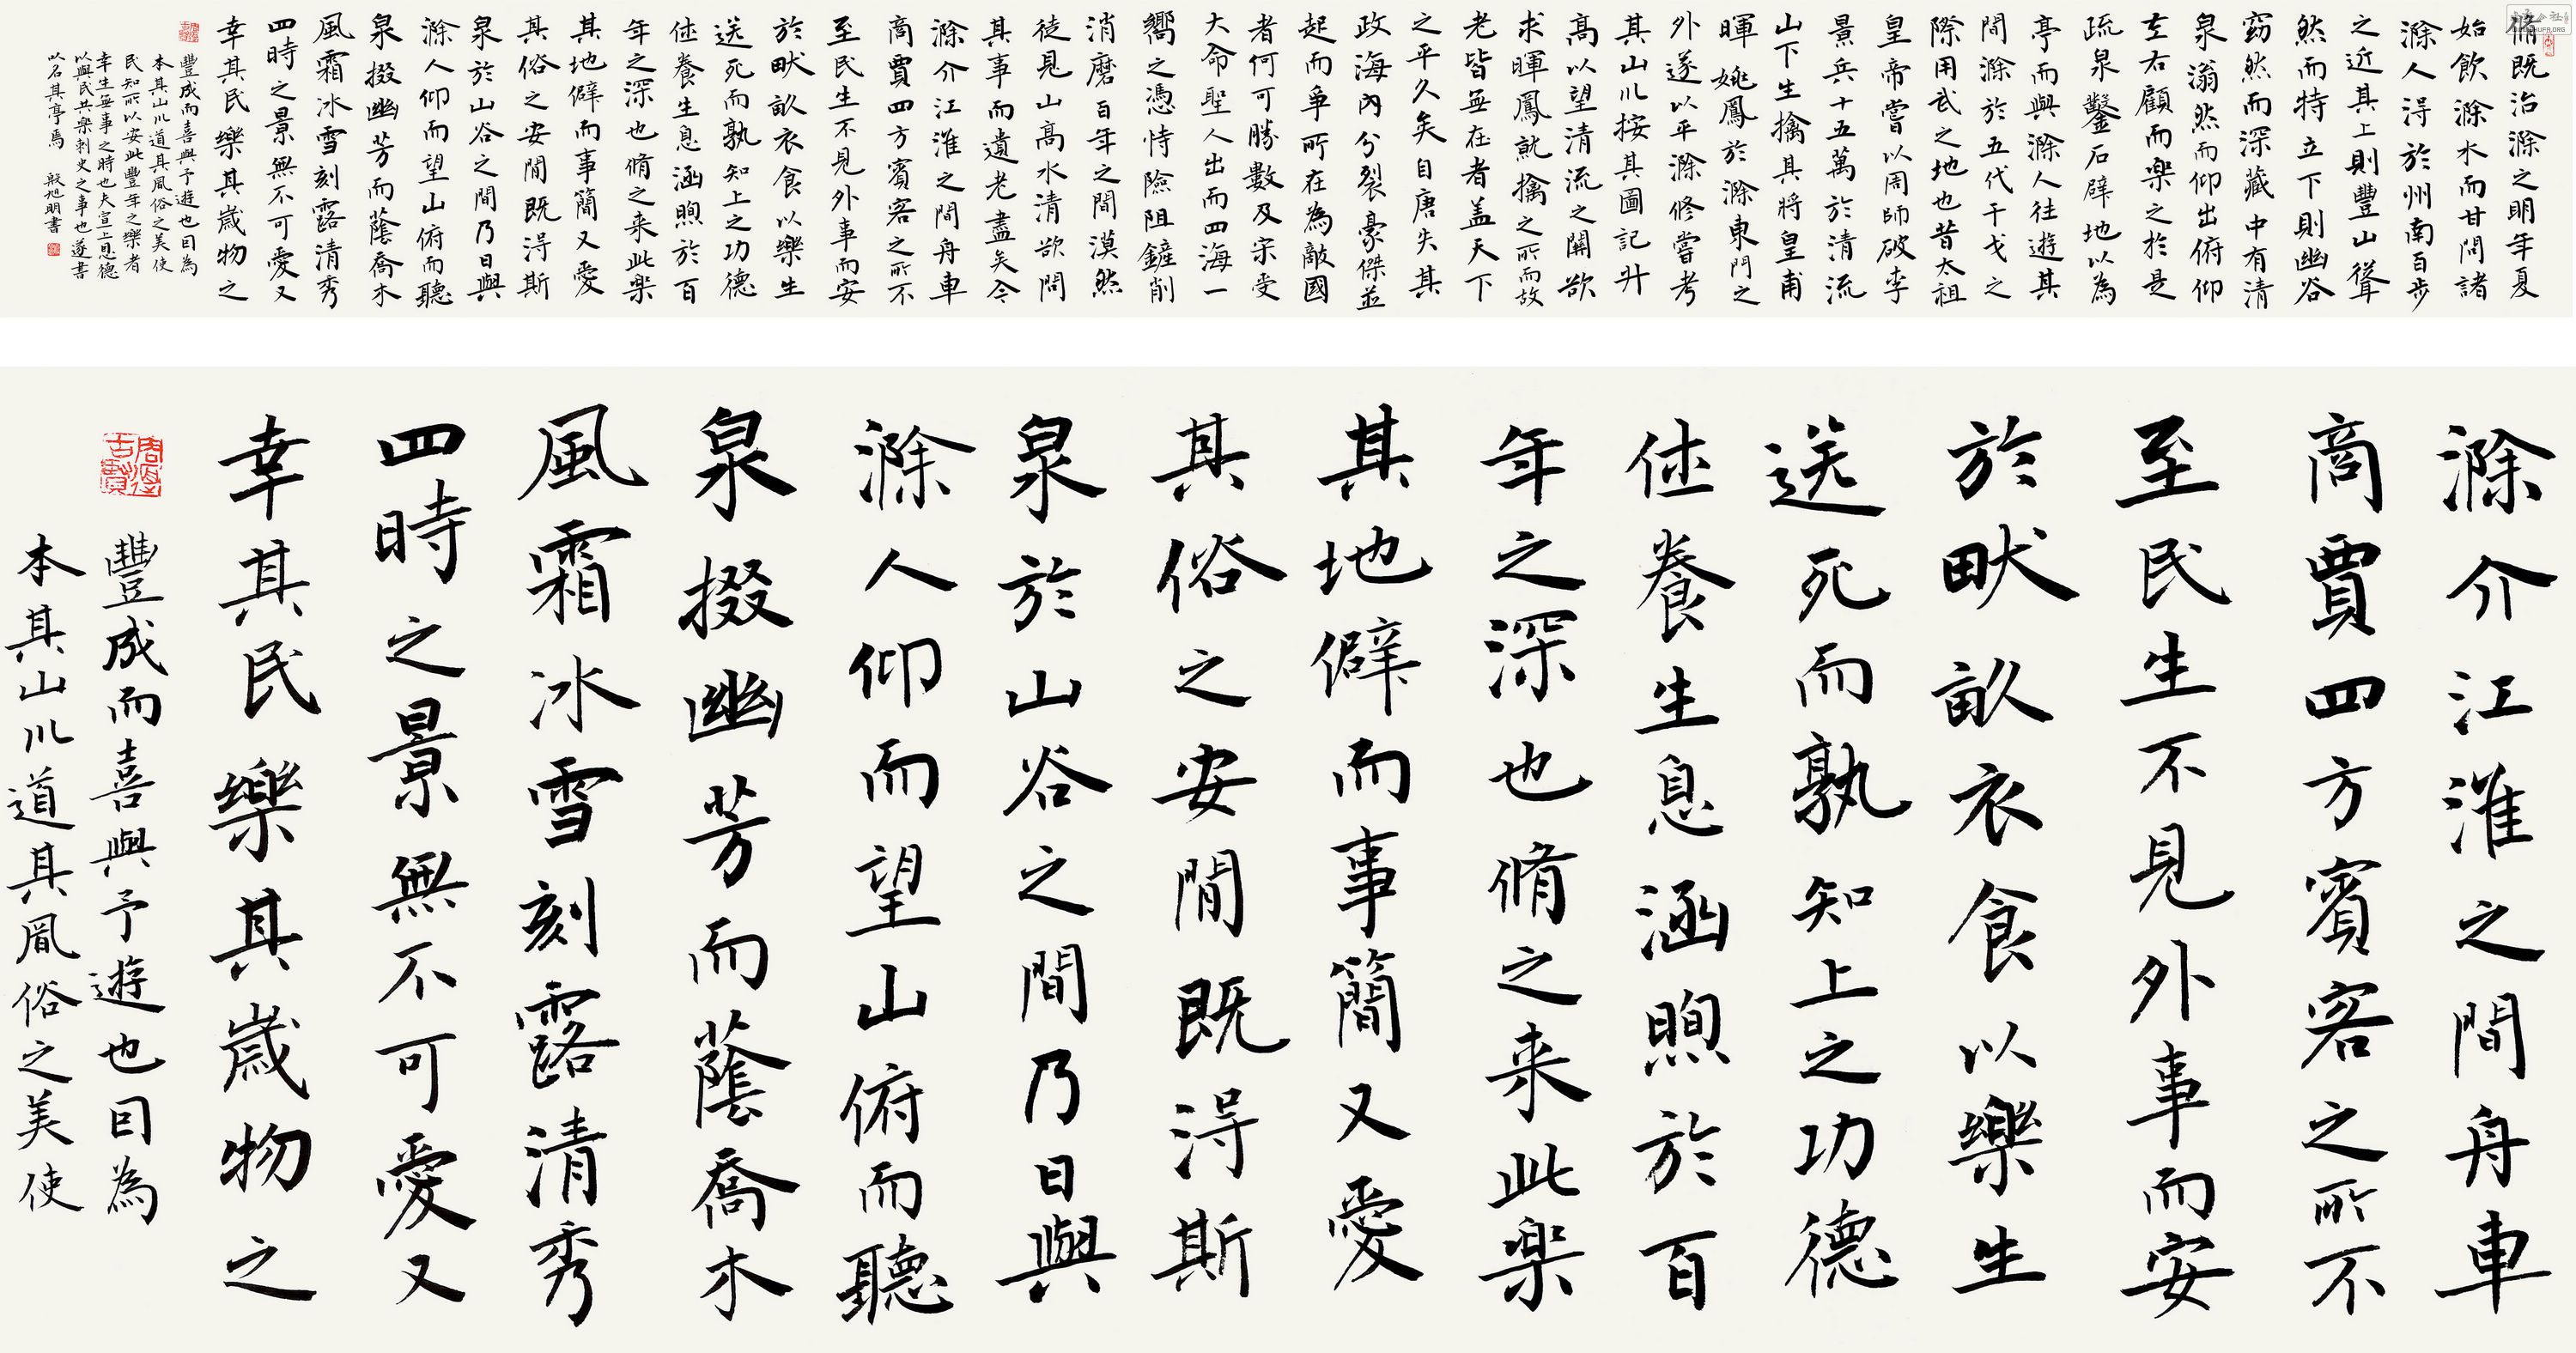 脩既治滁之明年夏
始飲滁水而甘問諸
滁人得於州南百步
之近其上則豐山聳
然而特立下則幽谷
窈然而深藏中有清
泉滃然而仰出俯仰
左右顧而樂之於是
疏泉鑿石辟地以為
亭而與滁人往遊其
間滁於五代干戈之
際用武之地也昔太祖
皇帝嘗以周師破李
景兵十五萬於清流
山下生擒其將皇甫
暉姚鳳於滁東門之
外遂以平滁修嘗考
其山川按其圖記升
高以望清流之關欲
求暉鳳就擒之所而故
老皆無在者蓋天下
之平久矣自唐失其
政海內分裂豪傑並
起而爭所在為敵國
者何可勝數及宋受
大命聖人出而四海一
嚮之憑恃險阻鏟削
消磨百年之間漠然
徒見山高水清欲問
其事而遺老盡矣今
滁介江淮之間舟車
商賈四方賓客之所不
至民生不見外事而安
於畎畝衣食以樂生
送死而孰知上之功德
休養生息涵煦於百
年之深也脩之来此樂
其地僻而事簡又愛
其俗之安閒既得斯
泉於山谷之間乃日與
滁人仰而望山俯而聽
泉掇幽芳而蔭喬木
風霜冰雪刻露清秀
四時之景無不可愛又
幸其民樂其歲物之
豐成而喜與予遊也因為
本其山川道其風俗之美使
民知所以安此豐年之樂者
幸生無事之時也夫宣上恩德
以與民共樂刺史之事也遂書
以名其亭焉 殷旭明書
滁介江淮之間舟車
商賈四方賓客之所不
至民生不見外事而安
於畎畝衣食以樂生
送死而孰知上之功德
休養生息涵煦於百
年之深也脩之来此楽
其地僻而事簡又愛
其俗之安閒既得斯
泉於山谷之間乃日與
滁人仰而望山俯而聽
泉掇幽芳而蔭喬木
風霜冰雪刻露清秀
四時之景無不可愛又
幸其民樂其歲物之
豐成而喜與予遊也因為
本其山川道其風俗之美使